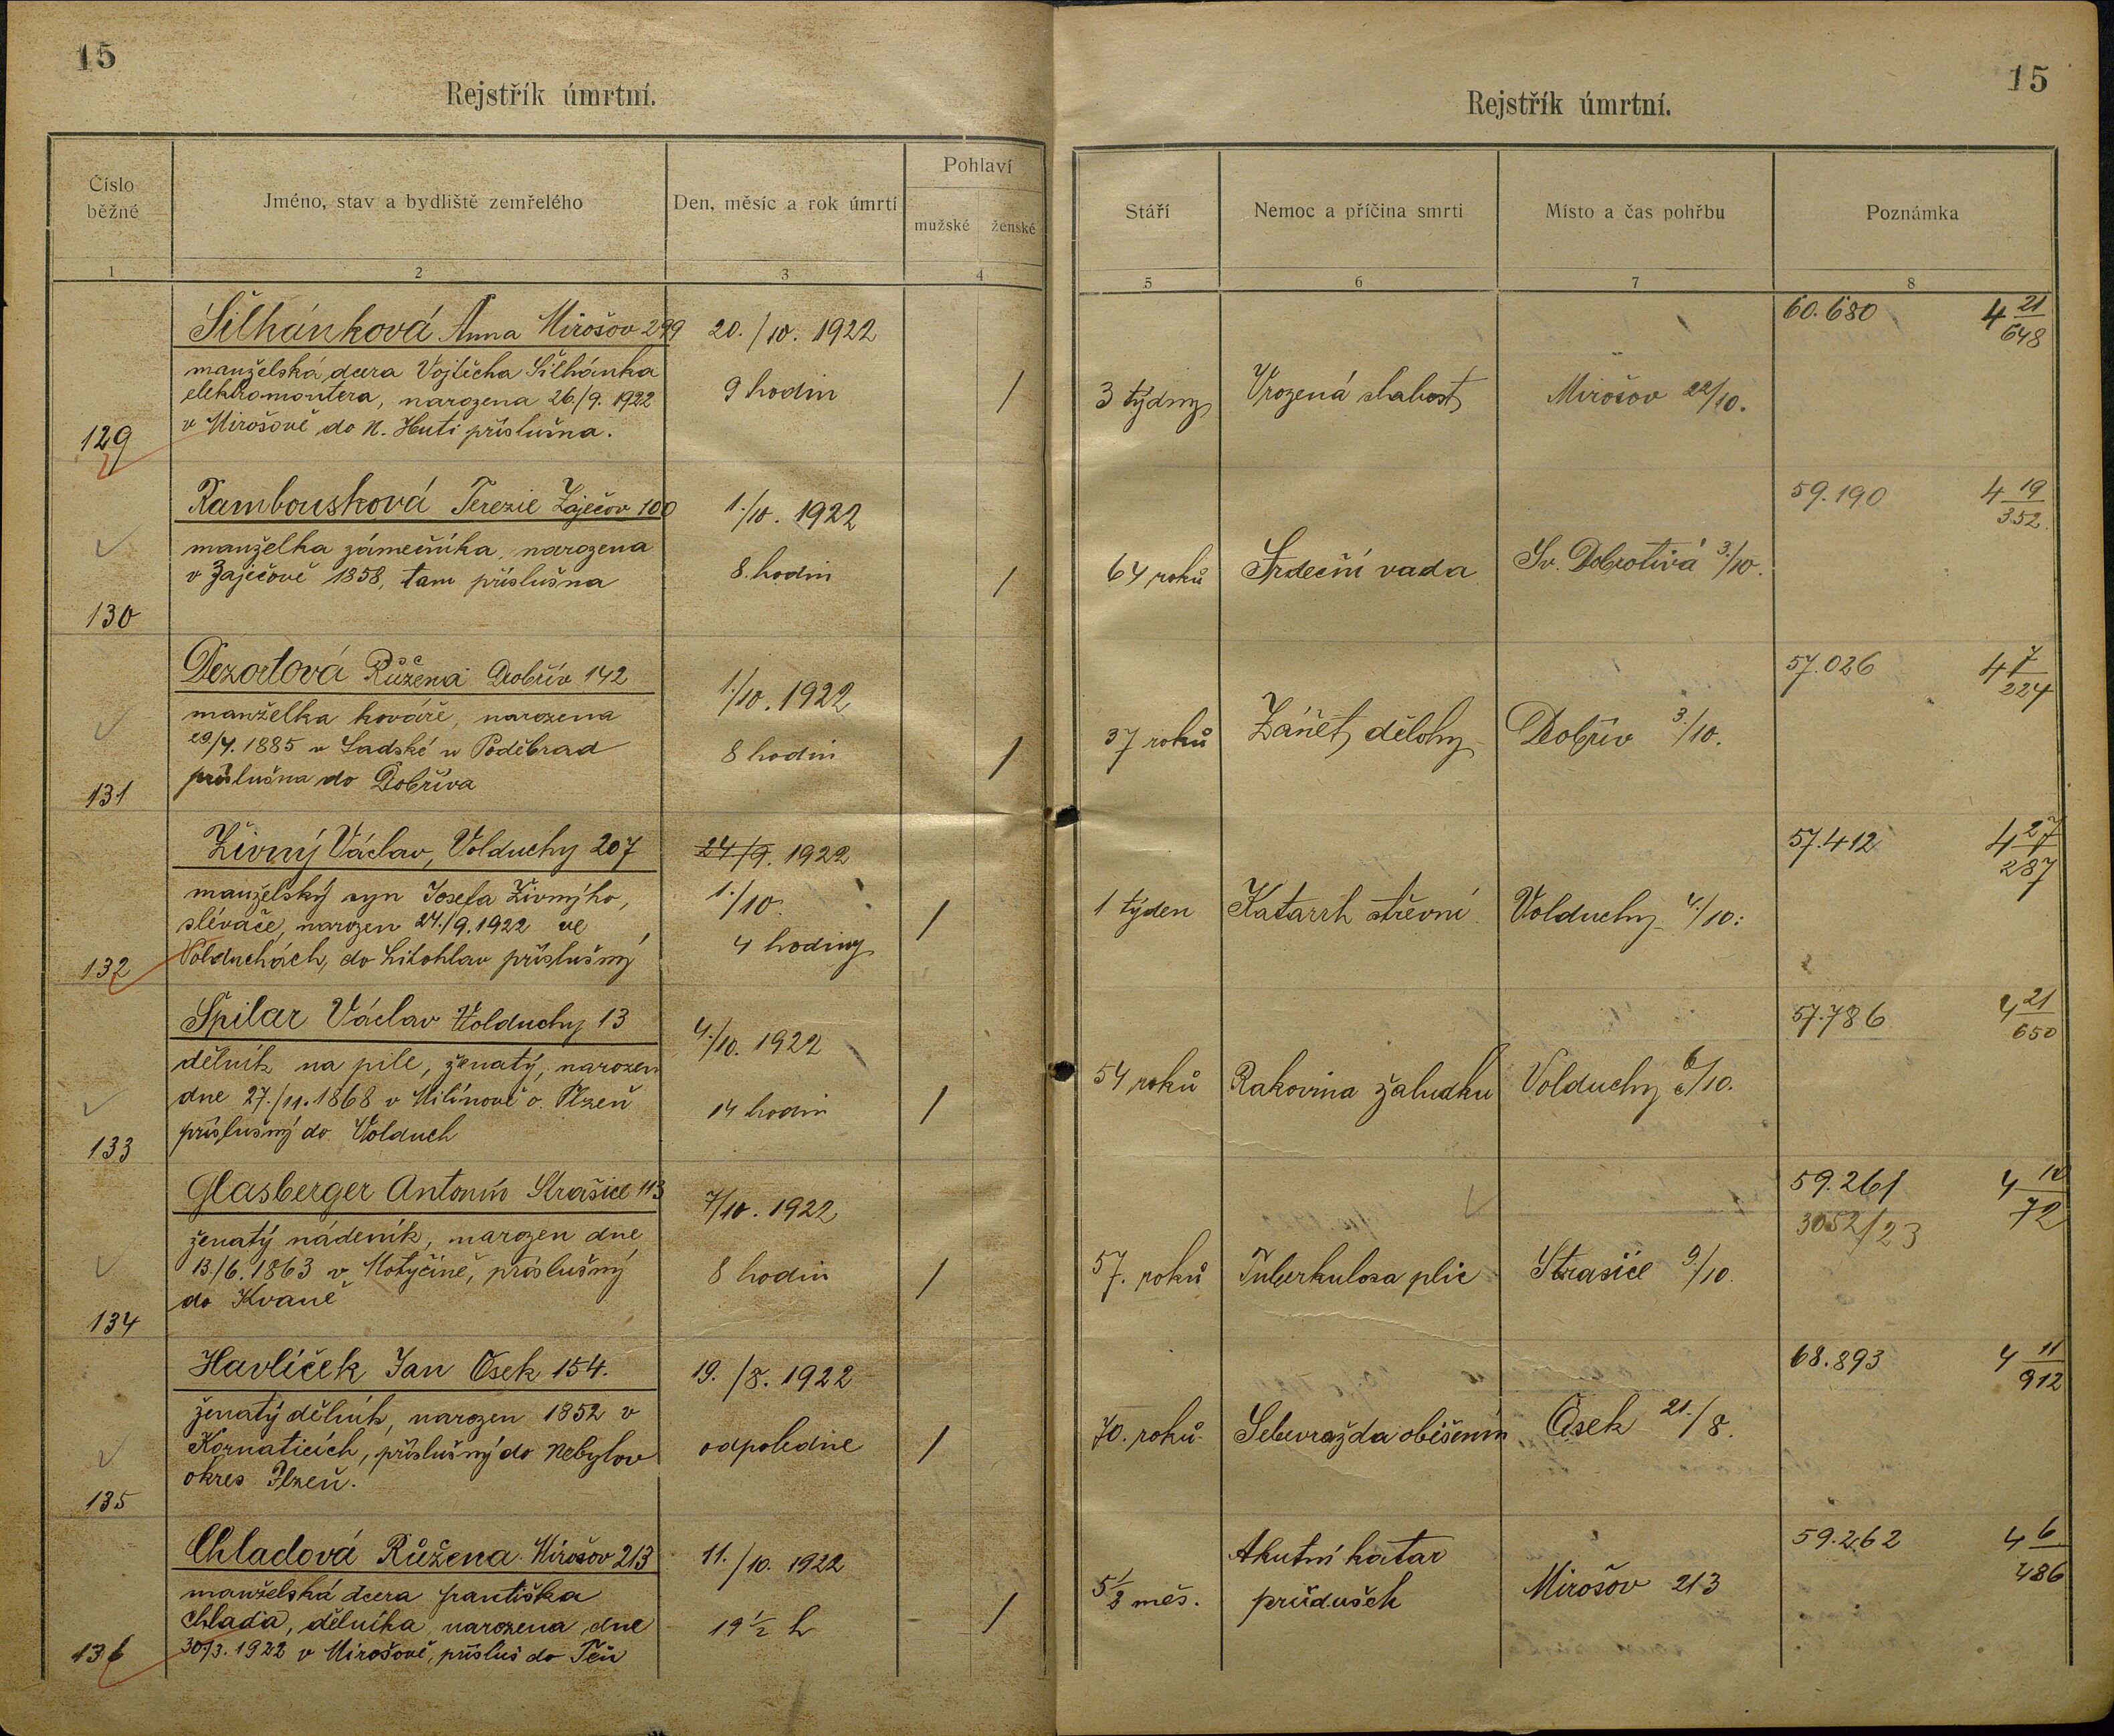 15
Rejstřík úmrtní.
Číslo běžné
Jméno, stav a bydliště zemřelého
Den, měsíc a rok úmrtí
Pohlaví
mužské
ženské
1
2
3
4
Šilhánková Anna Mirošov 299
20./10. 1922
manželská dcera Vojtěcha Šilhánka
elektromontera, narozena 26./9. 1922
9 hodin
/
v Mirošově do N. Huti příslušna.
129
Rambousková Terezie Zaječov 100
1./10. 1922
manželka zámečníka, narozena
v Zaječově 1858, tam příslušna
8. hodin
/
130
Dezortová Růžena Dobřív 142
1./10. 1922
manželka kováře, narozena
29/4. 1885 v Sadské u Poděbrad
8 hodin
/
příslušna do Dobříva
131
Živný Václav, Volduchy 207
24/9. 1922
manželský syn Josefa Živnýho,
1./10.
slévače, narozen 24./9. 1922 ve
/
4 hodiny
Volduchách, do Litohlav příslušný
132
Špilar Václav Volduchy 13
4./10. 1922
dělník na pile, ženatý, narozen
dne 27./11. 1868 v Milínově o. Plzeň
14 hodin
/
příslušný do Volduch
133
Glasberger Antonín Strašice 113
7/10. 1922
ženatý nádeník, narozen dne
13/6. 1863 v Motyčíně, příslušný
8 hodin
/
do Kvaně
134
Havlíček Jan Osek 154.
19./8. 1922
ženatý dělník, narozen 1852 v
Kornaticích, příslušný do Nebylov
odpoledne
/
okres Plzeň.
135
Chladová Růžena Mirošov 213
11./10. 1922
manželská dcera františka
Chlada, dělníka, narozena dne
19 1/2 h
/
30/3. 1922 v Mirošově, přísluš do Těň
136
15
Rejstřík úmrtní.
Stáří
Nemoc a příčina smrti
Místo a čas pohřbu
Poznámka
5
6
7
8
60.680
4 21/648
3 týdny
Vrozená slabost
Mirošov 22/10.
59.190
4 19/352
64 roků
Srdeční vada
Sv. Dobrotivá 3./10.
57.026
4 7/224
37 roků
Zánět dělohy
Dobřív 3./10.
57.412
4 27/287
1 týden
Katarrh střevní
Volduchy 4/10.
57.786
4 21/650
54 roků
Rakovina žaludku
Volduchy 6/10.
59.261
4 10/72
3052/23
57. roků
Tuberkulosa plic
Strašice 9./10.
68.893
4 11/912
70. roků
Sebevražda oběšením
Osek 21./8.
59.262
4 6/486
5 1/2 měs.
Akutní katar
průdušek
Mirošov 213